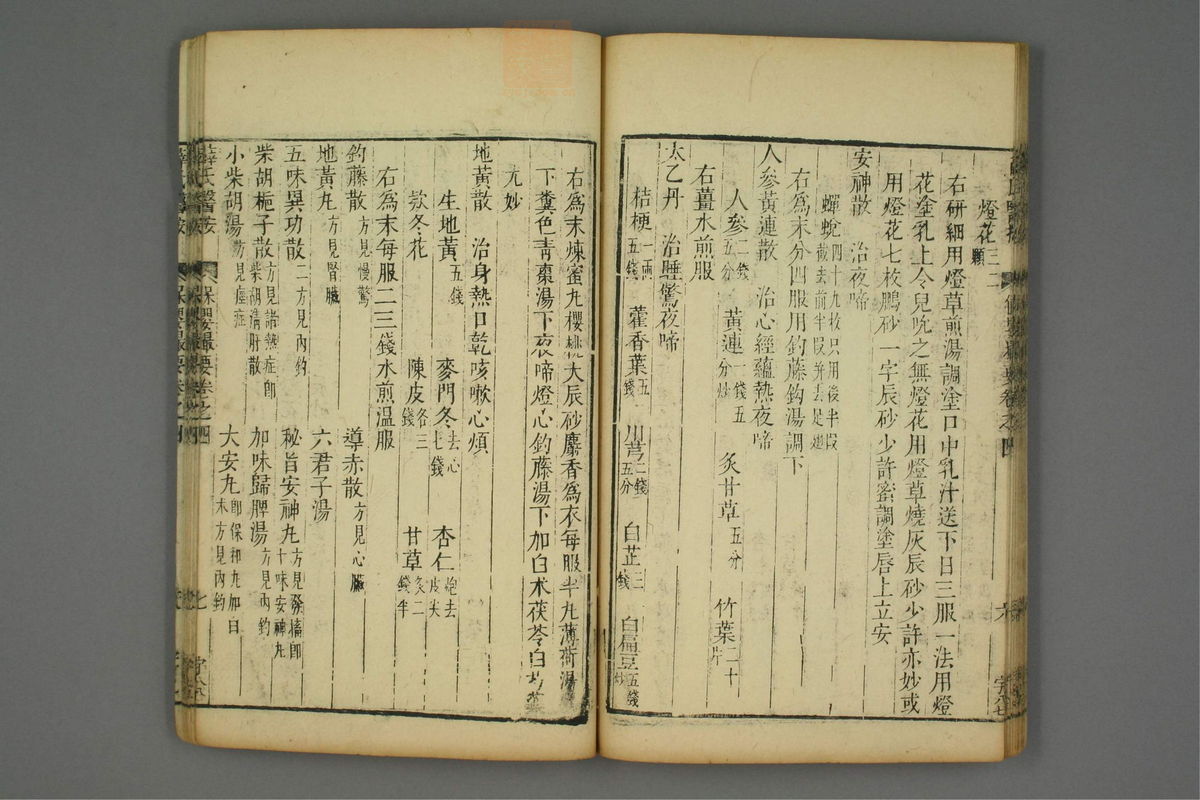 燈花三二顆
右研細用燈草煎湯調塗口中乳汁送下日三服一法用燈
花塗乳上令兒吮之無燈花用燈草燒灰辰砂少許亦妙或
用燈花七枚鵬砂一字辰砂少許蜜調塗唇上立安
安神散 治夜啼
蟬蛻四十九枚只用後半段截去前半段并去足翅
右為末分四服用釣藤鉤湯調下
人參黃連散 治心經蘊熱夜啼
人參二錢五分 黃連一錢五分炒 炙甘草五分 竹葉二十片
右薑水煎服
太乙丹 治睡驚夜啼
桔梗一兩五錢 藿香葉五錢 川芎二錢五分 白芷三錢 白扁豆五錢炒
右為末煉蜜丸櫻桃大辰砂麝香為衣每服半丸薄荷湯
下糞色青棗湯下夜啼燈心釣藤湯下加白术茯苓白芍葉
尤妙
地黃散 治身熱口乾咳嗽心煩
生地黃五錢 麥門冬去心七錢 杏仁炮去皮尖
欵冬花 陳皮各三錢 甘草炙二錢半
右為末每服二三錢水煎溫服
釣藤散方見慢驚 導赤散方見心臟
地黃丸方見腎臟 六君子湯
五味異功散二方見內釣 秘旨安神丸方見發搐即十味安神丸
柴胡梔子散方見諸熱症即柴胡清肝散 加味歸脾湯方見內釣
小柴胡湯方見痙症 大安丸即保和丸加白术方見內釣
薛氏醫按 保嬰撮要卷之四 七